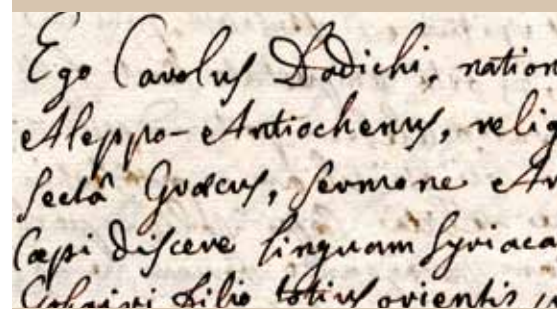 Ego Carolus Dadichi, nation
Aleppo-Antiochenus, relig
sectâ Græcus, sermone Ar
Cœpi discere linguam Syriaca
filio totius orientis